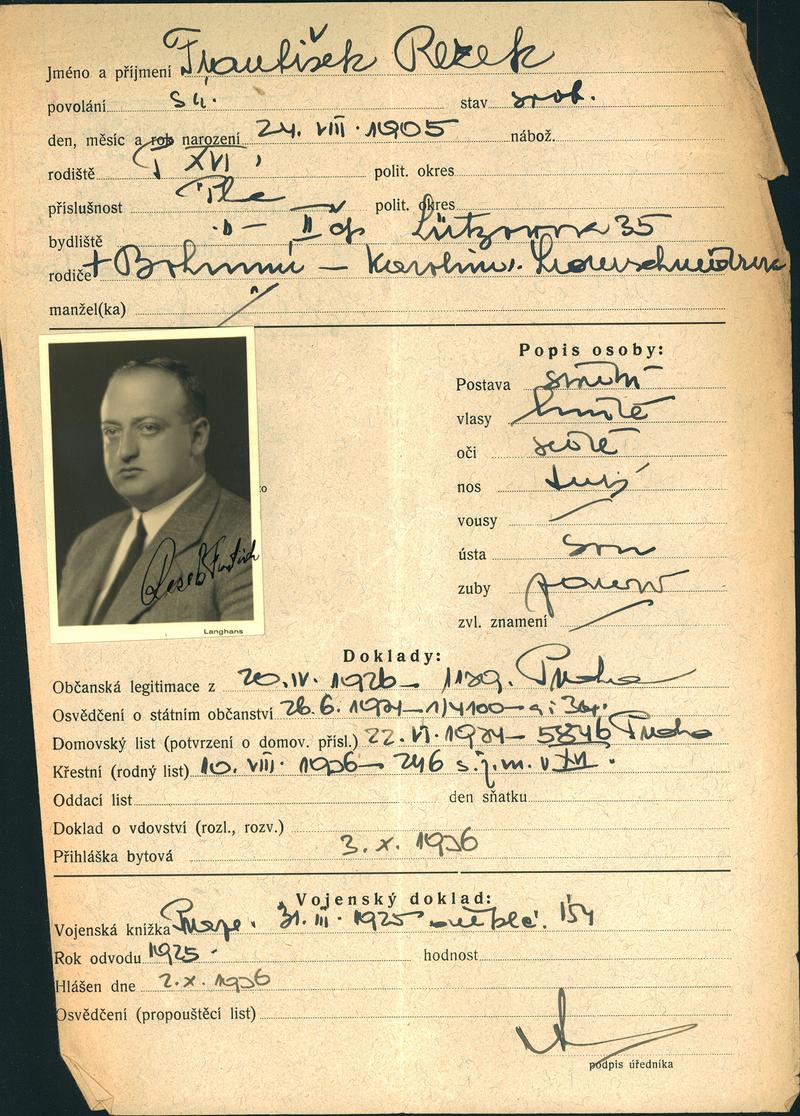 Jméno a příjmení František Rezek
povolání sú. stav svob.
den, měsíc a rok narození 24. VIII. 1905 nábož.
rodiště P XVI, polit. okres
příslušnost Pha polit. okres
bydliště -"- II čp Lützowova 35
rodiče + Bohumil — Karolina
manžel(ka)
Popis osoby:
Postava střední
vlasy hnědé
oči šedé
nos
vousy
ústa
zuby
zvl. znamení
Langhans
Doklady:
Občanská legitimace z 20. IV. 1926 — Praha
Osvědčení o státním občanství 26. 6.
Domovský list (potvrzení o domov. přísl.) 22. VI. 5846 Praha
Křestní (rodný list) 10. VIII. 1936 — 246 XVI.
Oddací list den sňatku
Doklad o vdovství (rozl., rozv.)
Přihláška bytová 3. X. 1936
Vojenský doklad:
Vojenská knížka 31. III. 1925 154
Rok odvodu 1925 hodnost
Hlášen dne 2. X. 1936
Osvědčení (propouštěcí list)
podpis úředníka